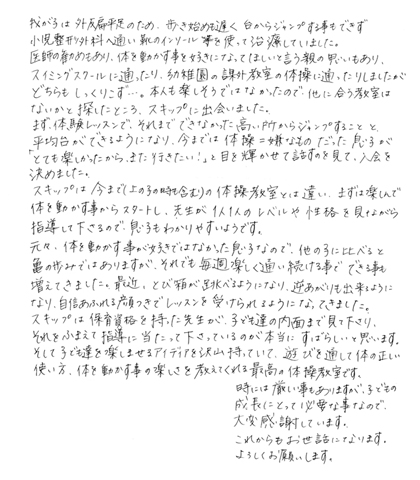 我が子は外反扁平足のため、歩き始めも遅く台からジャンプする事もできず
小児整形外科へ通い靴のインソール等を使って治療していました。
医師の勧めもあり、体を動かす事を好きになってほしいと言う親の思いもあり、
スイミングスクールに通ったり、幼稚園の課外教室の体操に通ったりしましたが
どちらもしっくりこず…。本人も楽しそうではなかったので、他に合う教室は
ないかと探したところ、スキップに出会いました。
まず、体験レッスンで、それまでできなかった高い所からジャンプすることと、
平均台ができるようになり、今までは体操＝嫌なものだった息子が
「とても楽しかったから、また行きたい！」と目を輝かせて話すのを見て、入会を
決めました。
スキップは今まで(上の子の時も含む)の体操教室とは違い、まずは楽しんで
体を動かす事からスタートし、先生が1人1人のレベルや性格を見ながら
指導して下さるので、息子もわかりやすいようです。
元々、体を動かす事が好きではなかった息子なので、他の子に比べると
亀の歩みではありますが、それでも毎週楽しく通い続ける事でできる事も
増えてきました。最近、とび箱が跳べるようになり、逆あがりも出来るように
なり、自信あふれる顔つきでレッスンを受けられるようになってきました。
スキップは保育資格を持った先生が、子ども達の内面まで見て下さり、
それをふまえて指導に当たって下さっているのが本当にすばらしいと思います。
そして子ども達を楽しませるアイディアを沢山持っていて、遊びを通して体の正しい
使い方、体を動かす事の楽しさを教えてくれる最高の体操教室です。
時には厳しい事もありますが、子どもの
成長にとって必要な事なので、
大変感謝しています。
これからもお世話になります。
よろしくお願いします。